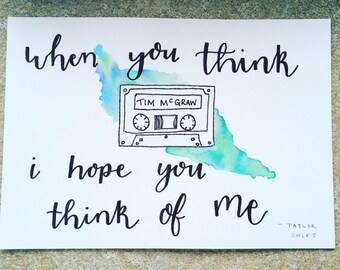 when you think
TIM McGRAW
i hope you
think of me
- TAYLOR
SWIFT